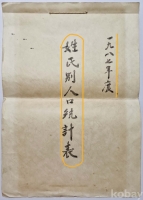 一九八七年度
姓氏別人口統計表
kobay